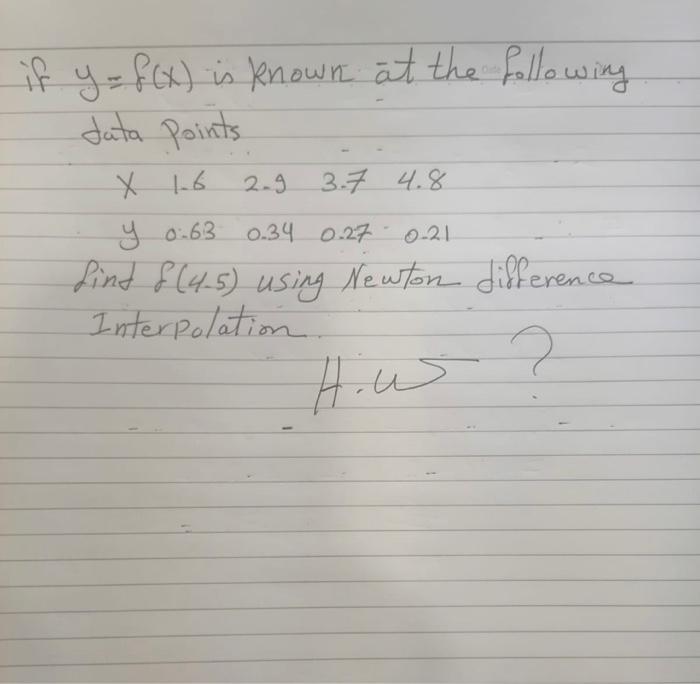 if y = f(x) is known at the following
data Points
X 1.6 2.9 3.7 4.8
y 0.63 0.34 0.27 0.21
find f(4.5) using Newton difference
Interpolation.
H.W ?